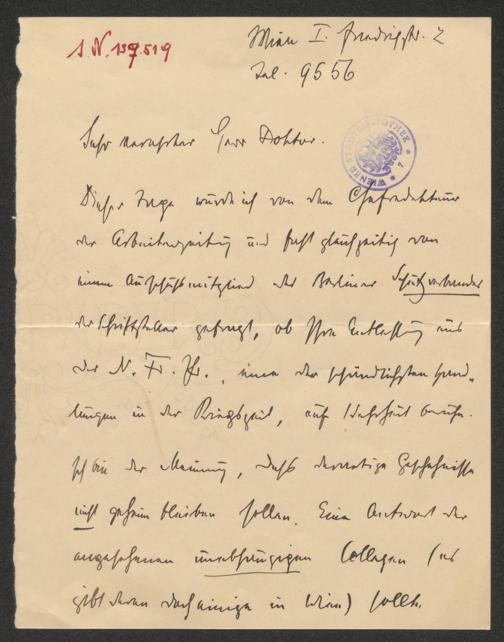 J.N. 139.519
Wien I. Friedrichstr. 2
Tel. 9556
WIENER STADTBIBLIOTHEK
Sehr verehrter Herr Doktor.
Dieser Tage wurde ich von dem Chefredakteur
der Arbeiterzeitung und fast gleichzeitig von
einem Ausschußmitglied des Berliner Schutzverbandes
der Schriftsteller gefragt, ob Ihre Entlassung aus
der N. Fr. Pr., eine der schändlichsten Hand-
lungen in der Kriegszeit, auf Wahrheit beruhe.
Ich bin der Meinung, dass derartige Geschehnisse
nicht geheim bleiben sollen. Eine Antwort der
angesehenen unabhängigen Collegen (es
gibt deren doch einige in Wien) sollte